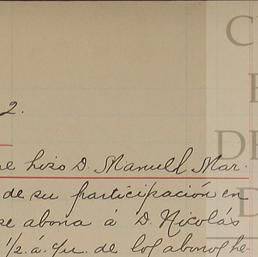 2.
e hiso D. Manuel Mar.
de su participación en
se abona á D. Nicolás
1/2. á. c/u. de los abonos he-
C
E
DE
D